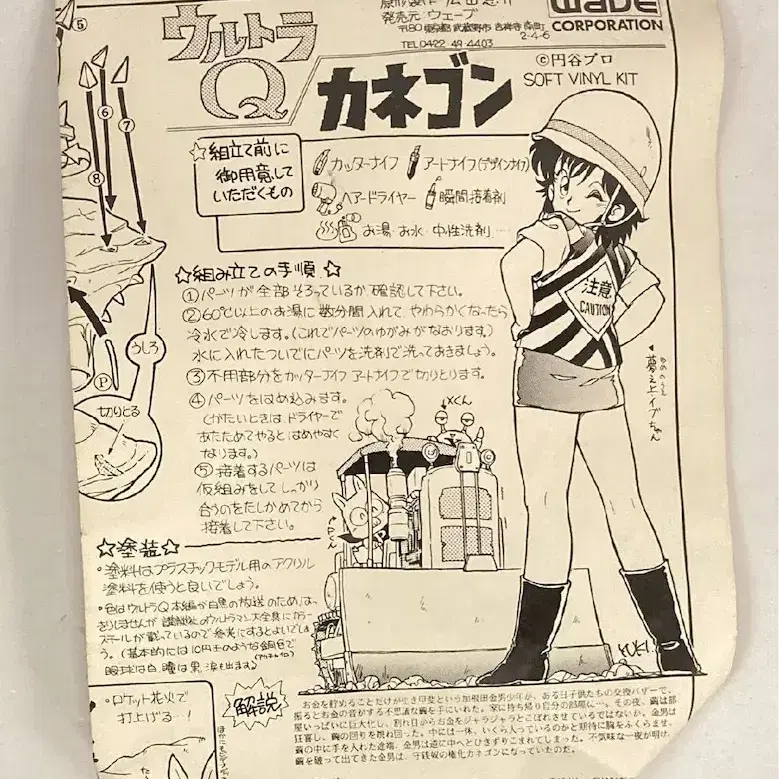 ⑤
発売元 ウェーブ
WAVE
CORPORATION
〒180 東京都 武蔵野市 吉祥寺 南町
2-4-6
TEL 0422-49-4403
ウルトラ
Q
カネゴン
©円谷プロ
SOFT VINYL KIT
⑥
⑦
⑧
☆組立て前に
御用意して
いただくもの
カッターナイフ アートナイフ(デザインナイフ)
ヘアードライヤー 瞬間接着剤
お湯・お水・中性洗剤…
☆組み立ての手順☆
①パーツが全部そろっているか確認して下さい。
②60℃以上のお湯に数分間入れて やわらかくなったら
冷水で冷します。(これでパーツのゆがみがなおります。)
水に入れたついでにパーツを洗剤で洗っておきましょう。
③不用部分をカッターナイフ アートナイフで切りとります。
④パーツをはめ込みます。
(かたいときは ドライヤーで
あたためてやると はめやすく
なります。)
⑤接着するパーツは
仮組みをして しっかり
合うのをたしかめてから
接着して下さい。
うしろ
Ⓟ
切りとる
注意
CAUTION
夢之上イブちゃん
Xくん
Pくん
☆塗装☆
・塗料はプラスチックモデル用のアクリル
塗料を使うと良いでしょう。
・色はウルトラQ本編が白黒の放送のため、はっ
きりしませんが 講談社のウルトラマン大全集にカラー
スチールが載っているので参考にするとよいでしょ
う。(基本的には10円玉のような銅色で
眼球は白、瞳は黒、
YUKI.
・ロケット花火で
打上げる…!
解説
お金を貯めることだけが生き甲斐という加根田金男少年が、ある日子供たちの交換バザーで、
振るとお金の音がする不思議な繭を手にいれた。家に持ち帰り自分の部屋に…。その夜、繭は部
屋いっぱいに巨大化し、割れ目からお金をジャラジャラとこぼれさせているではないか。金男は
狂喜し、繭の回りを跳ね回った。中には一体、いくら入っているのかと期待に胸をふくらませ、
繭の中に手を入れた途端、金男は道に中へとひきずりこまれてしまった。不気味な一夜が明け
繭を破って出てきた金男は、守銭奴の権化カネゴンになっていたのだ。